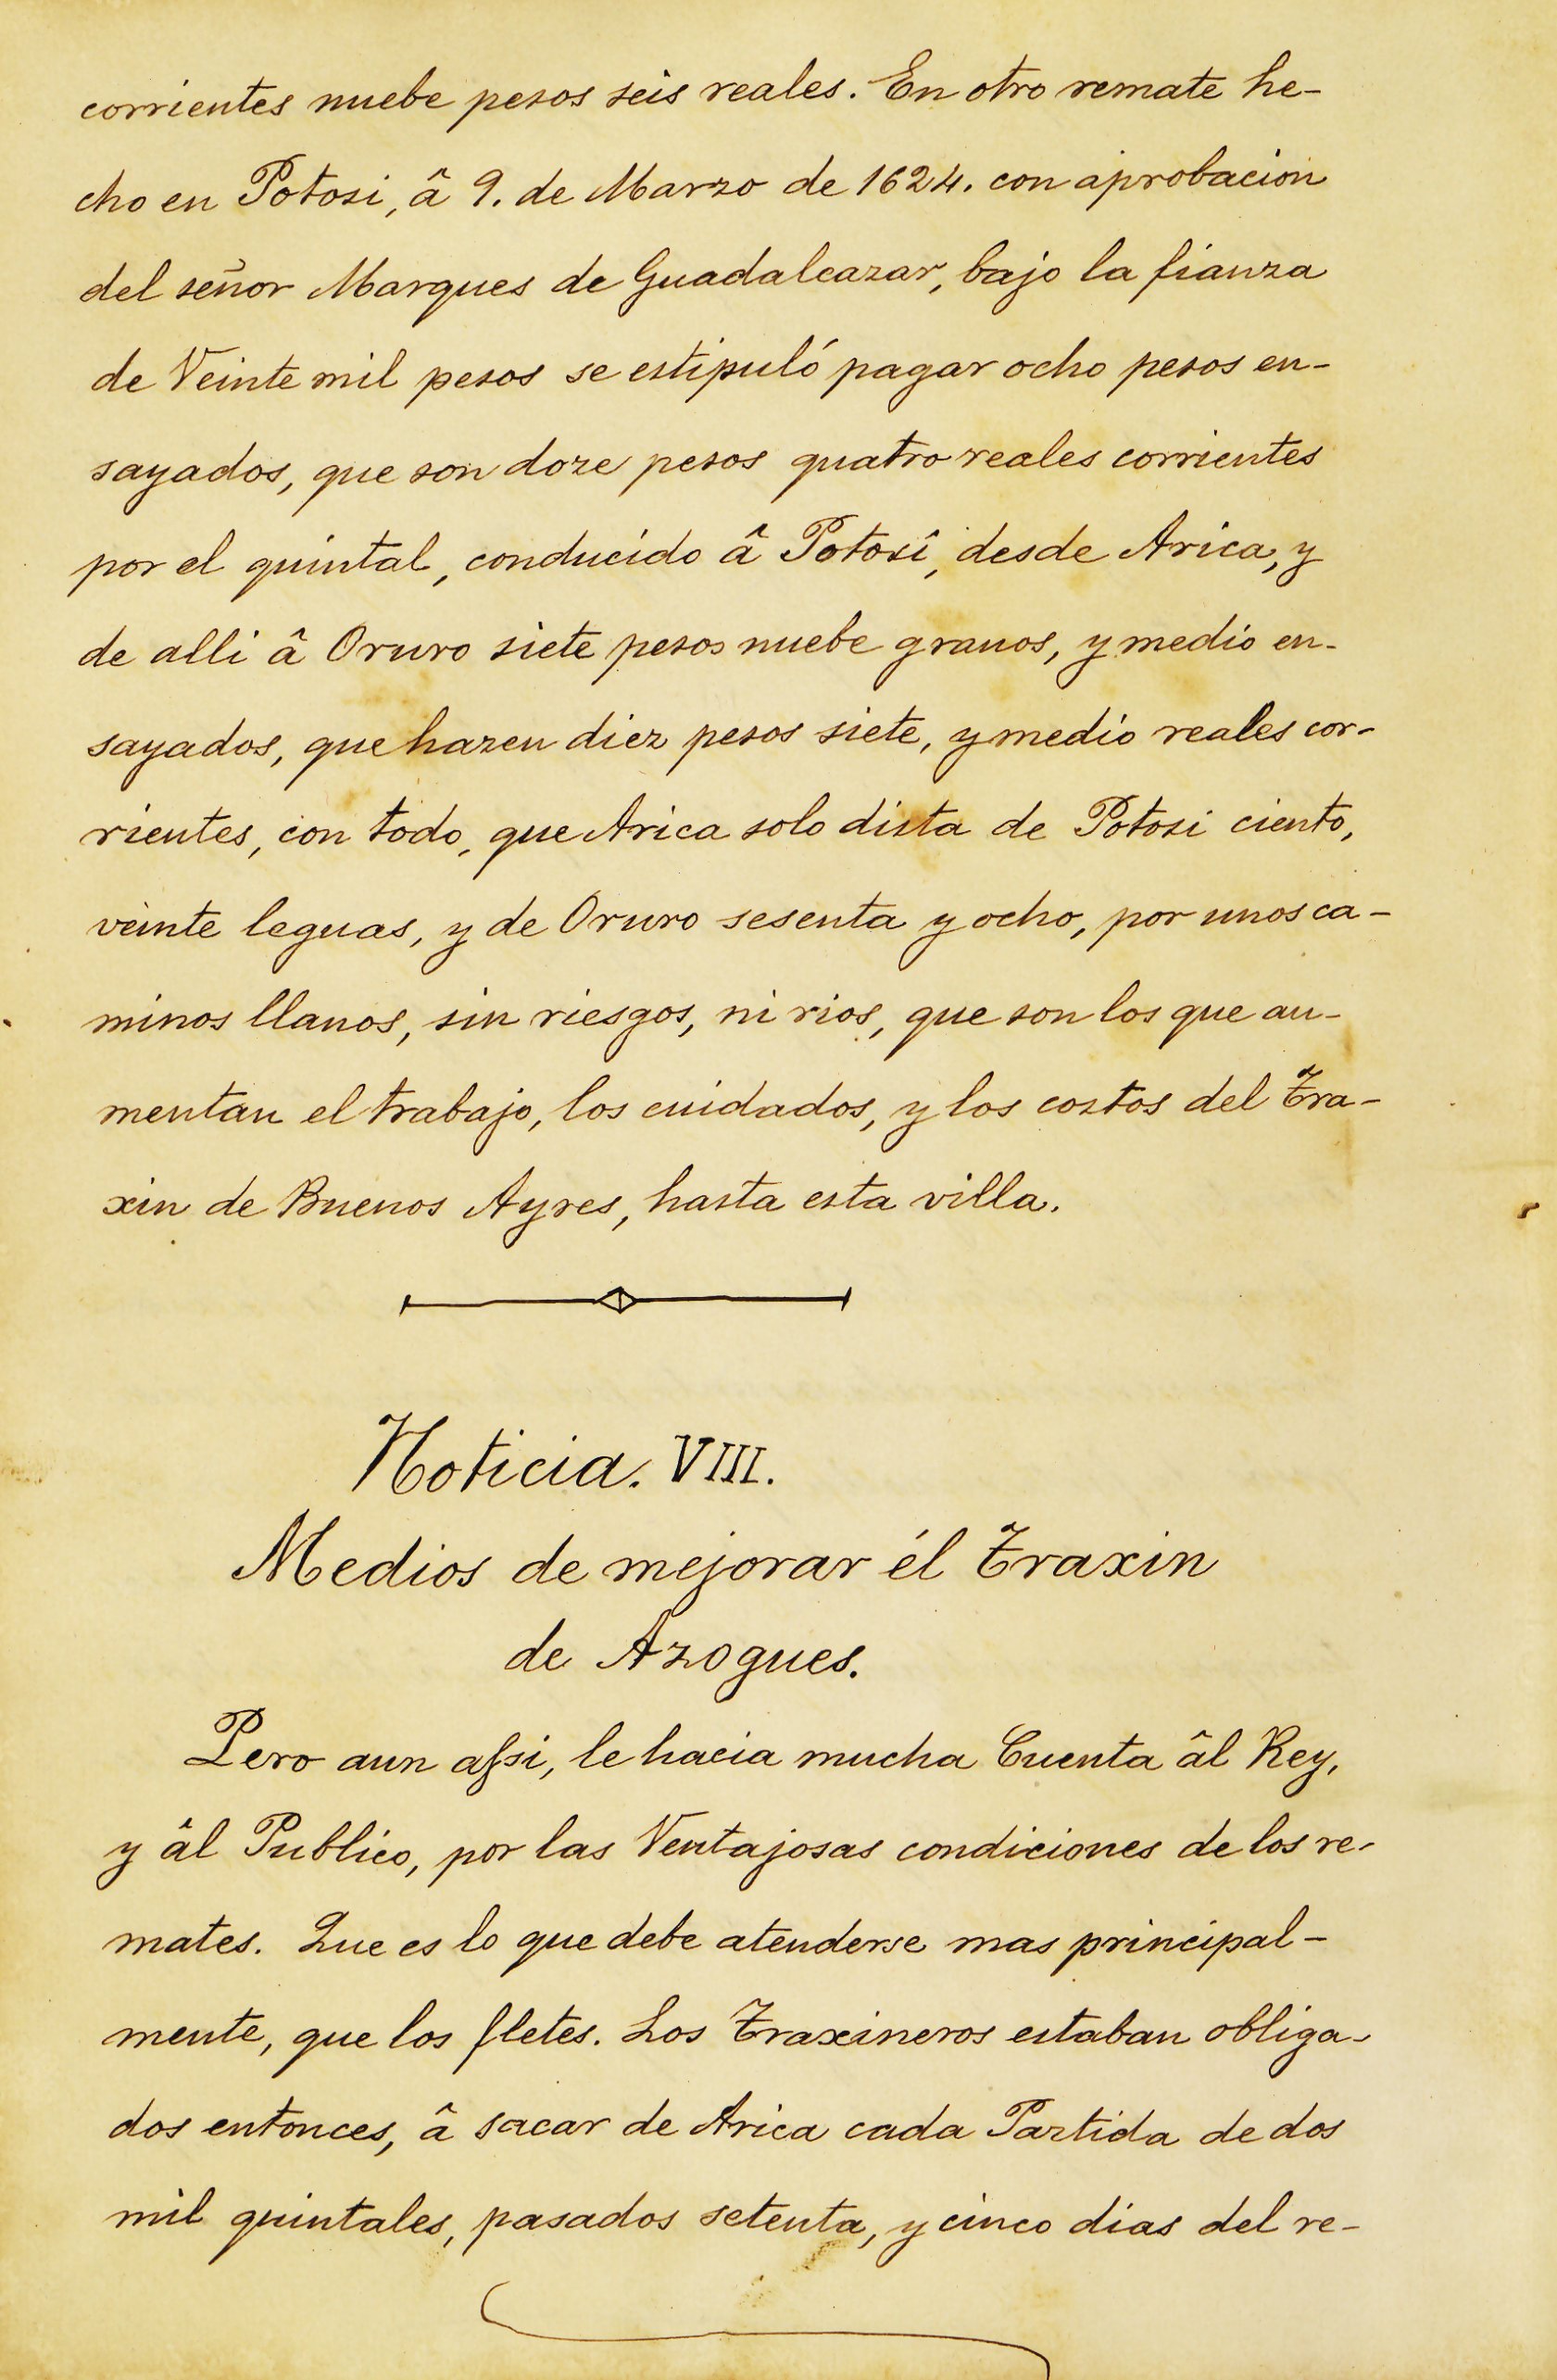 corrientes nuebe pesos seis reales. En otro remate he-
cho en Potosi, â 9. de Marzo de 1624. con aprobacion
del señor Marques de Guadalcazar, bajo la fianza
de Veinte mil pesos se estipuló pagar ocho pesos en-
sayados, que son doze pesos quatro reales corrientes
por el quintal, conducido â Potosî, desde Arica, y
de alli â Oruro siete pesos nuebe granos, y medio en-
sayados, que hazen diez pesos siete, y medio reales cor-
rientes, con todo, que Arica solo dista de Potosi ciento,
veinte leguas, y de Oruro sesenta y ocho, por unos ca-
minos llanos, sin riesgos, ni rios, que son los que au-
mentan el trabajo, los cuidados, y los costos del Tra-
xin de Buenos Ayres, hasta esta villa.
Noticia. VIII.
Medios de mejorar él Traxin
de Azogues.
Pero aun assi, le hacia mucha Cuenta âl Rey,
y âl Publico, por las Ventajosas condiciones de los re-
mates. Que es lo que debe atenderse mas principal-
mente, que los fletes. Los Traxineros estaban obliga-
dos entonces, â sacar de Arica cada Partida de dos
mil quintales, pasados setenta, y cinco dias del re-